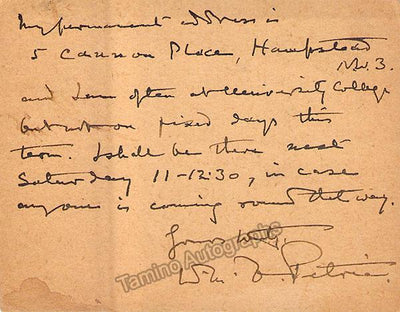 My permanent address is
5 Cannon Place, Hampstead
N.W. 3.
and I am often at University College
but not on fixed days this
term. I shall be there next
Saturday 11-12:30, in case
anyone is coming round that way.
Yours truly,
Tamino Autographs
W. M. F. Petrie.